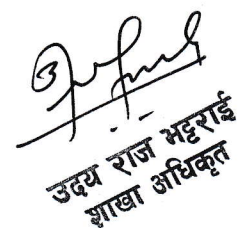 उदय राज भट्टराई
शाखा अधिकृत